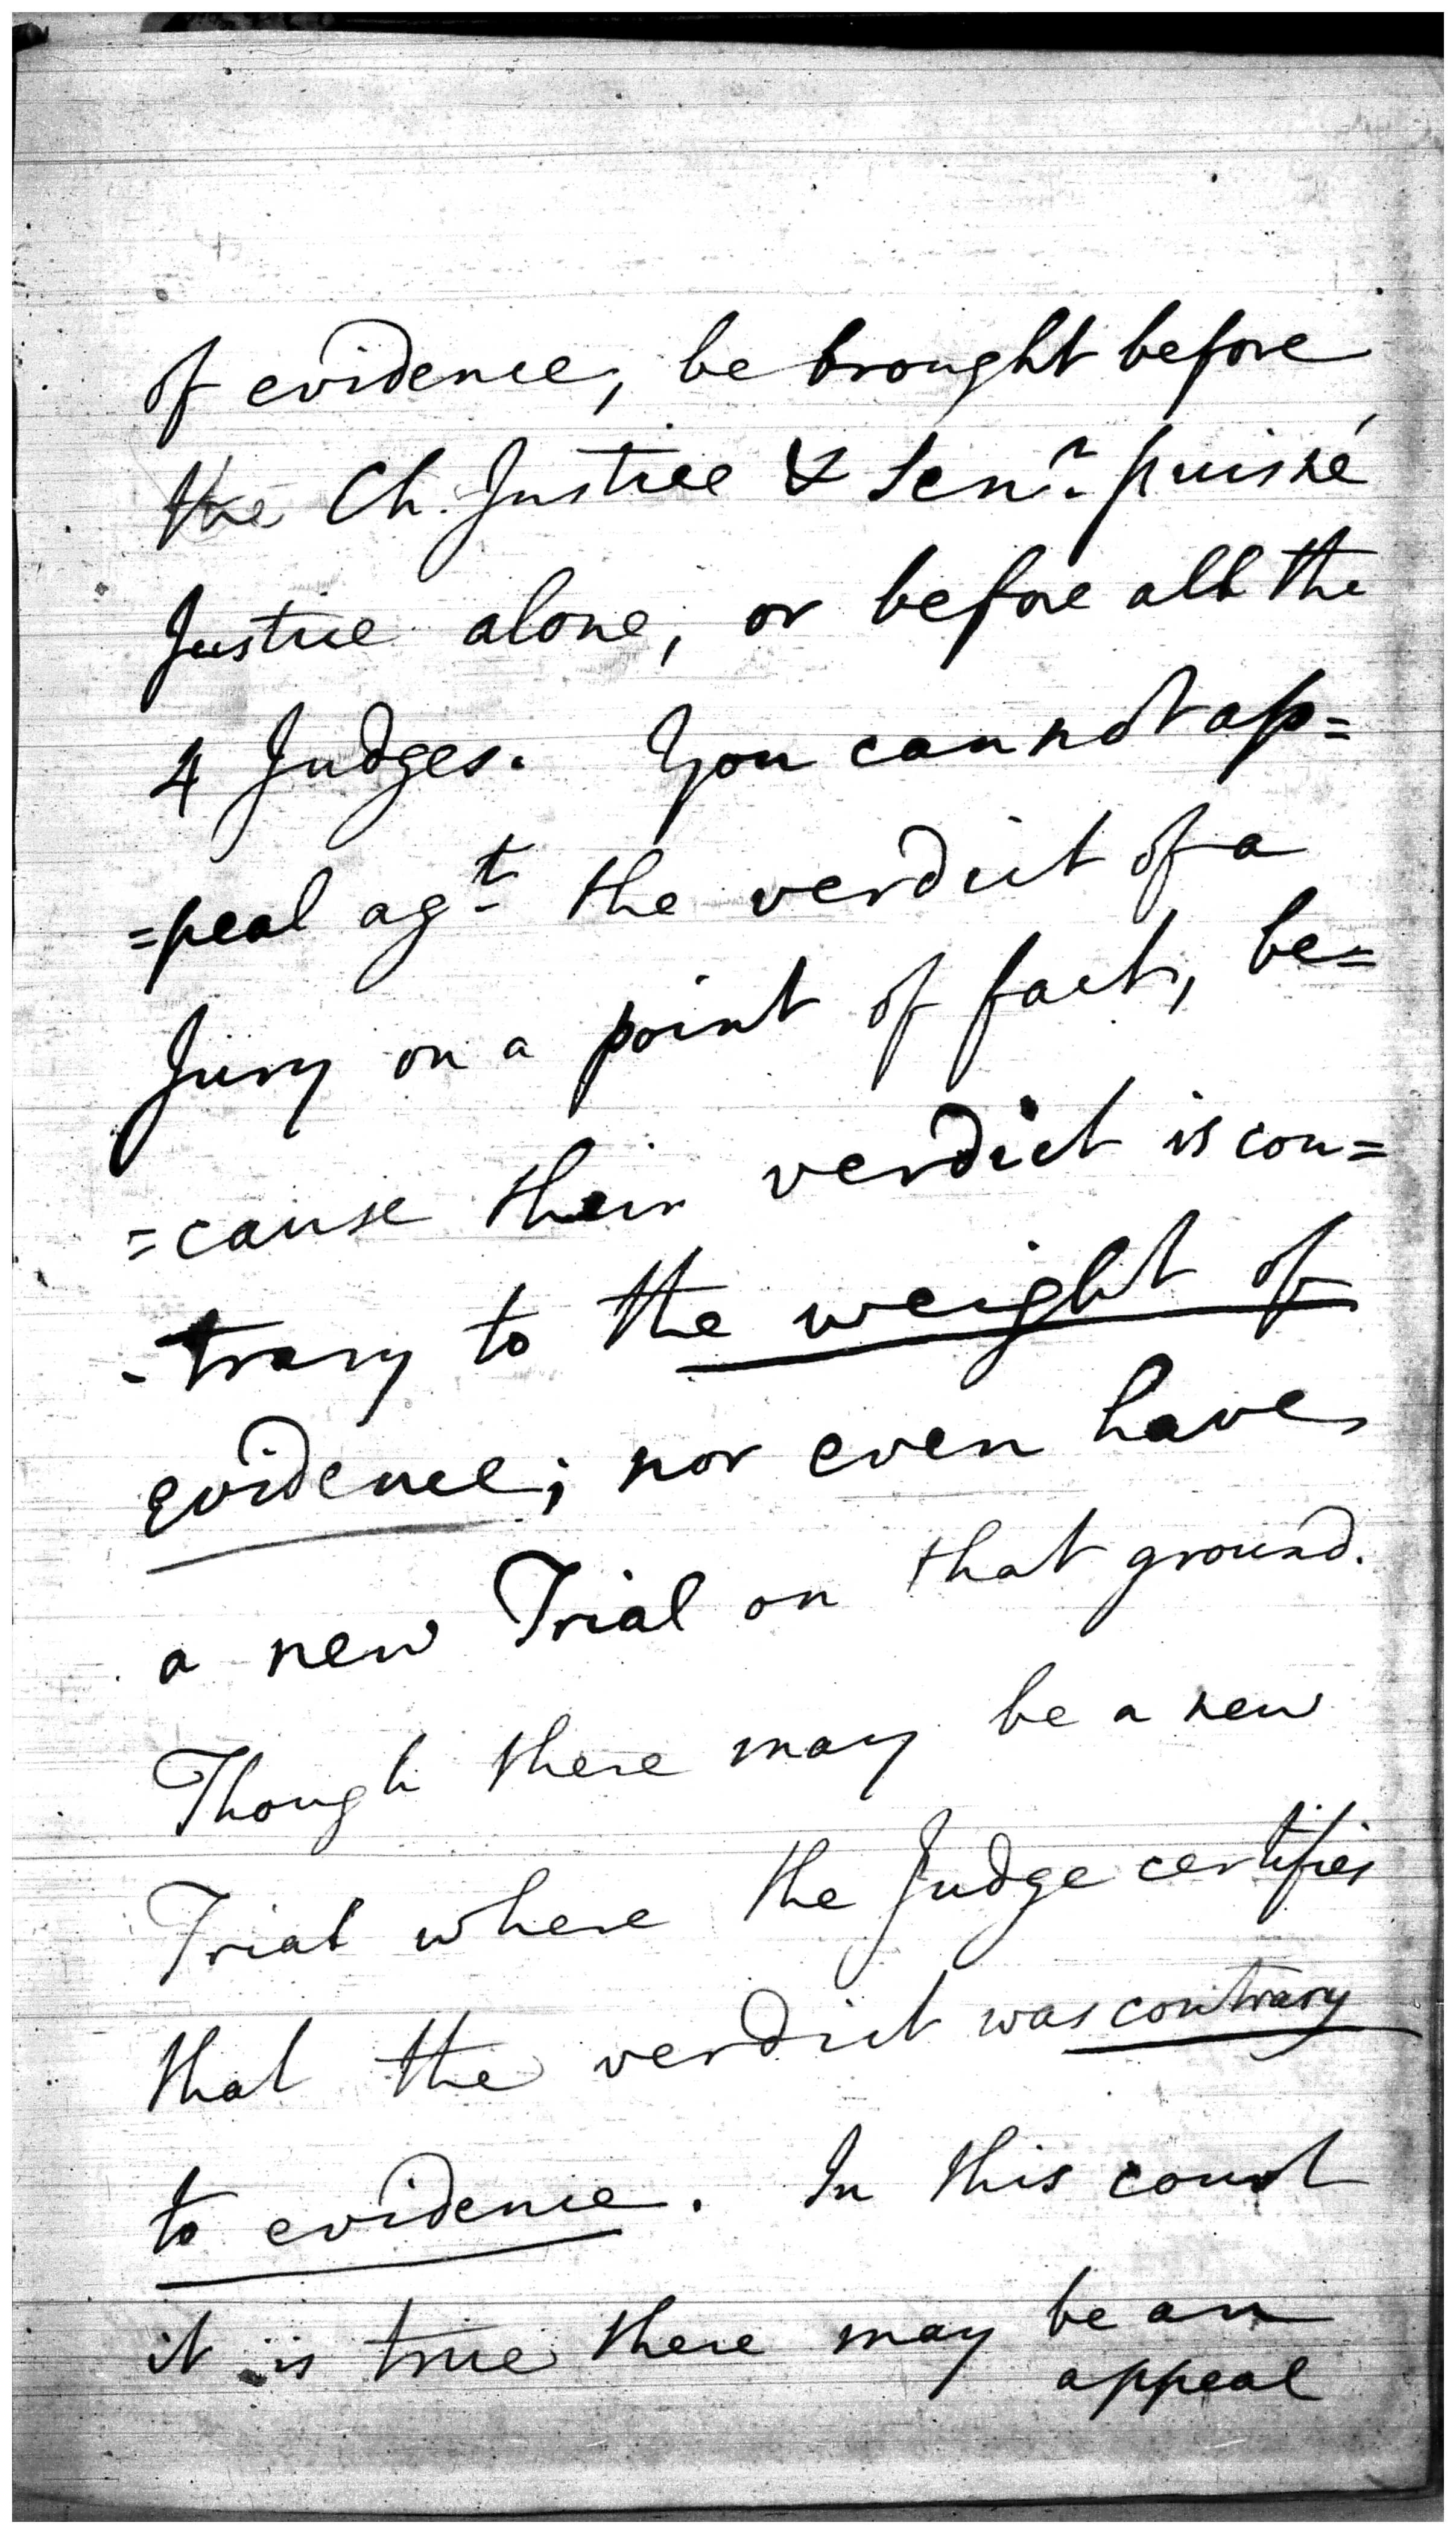 of evidence, be brought before
the Ch. Justice & Senr. puisné
Justice alone, or before all the
4 Judges. You cannot ap=
=peal agt. the verdict of a
Jury on a point of fact, be=
=cause their verdict is con=
-trary to the weight of
evidence; nor even have
a new Trial on that ground.
Though there may be a new
Trial where the Judge certifies
that the verdict was contrary
to evidence. In this court
it is true there may be an
appeal